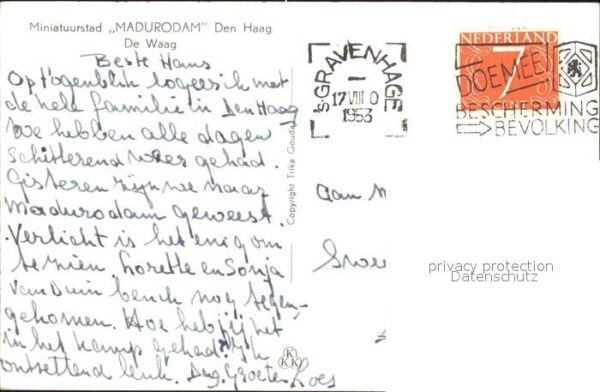 Miniatuurstad „MADURODAM" Den Haag
De Waag
Beste Hans
Op 't ogenblik logeer ik met
de hele familie in Den Haag
We hebben alle dagen
schitterend weer gehad.
Gisteren zijn we naar
Madurodam geweest.
Verlicht is het enig om
te zien. Lorette en Sonja
van Duin ben ik nog tegen-
gekomen. Hoe heb jij het
in het kamp gehad?
ontzettend leuk. Dag. Groeten Loes
Copyright Trika Gouda
KKK
'sGRAVENHAGE
17 VIII 0
1953
NEDERLAND
7
DOE MEE!
BESCHERMING
BEVOLKING
aan
privacy protection
Datenschutz